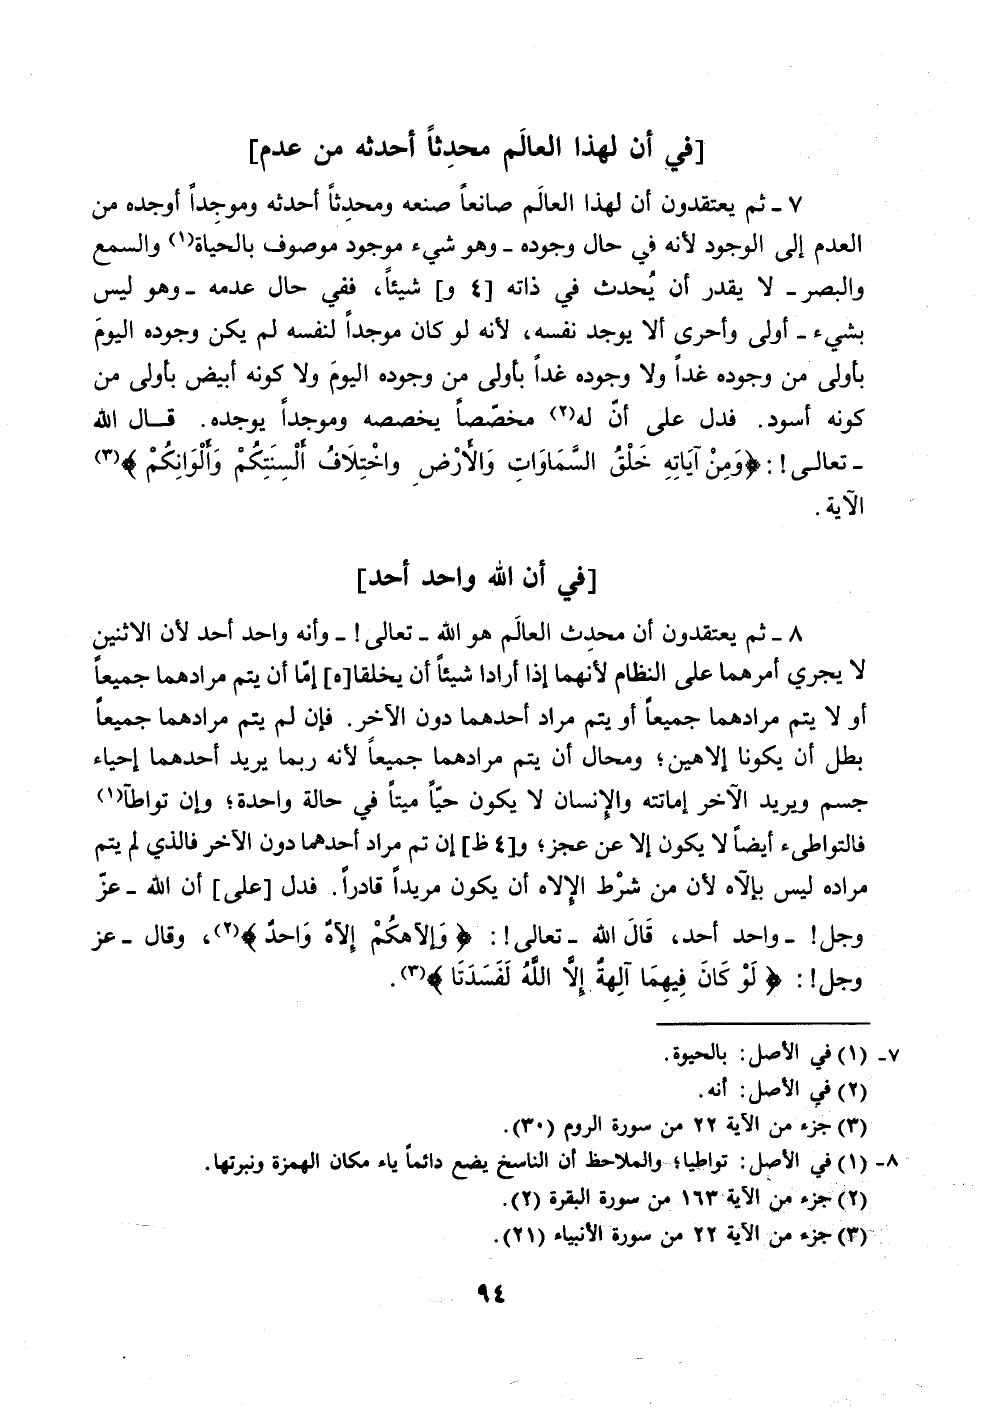 [في أن لهذا العالَم محدِثاً أحدثه من عدم]
٧ ـ ثم يعتقدون أن لهذا العالَم صانعاً صنعه ومحدِثاً أحدثه وموجِداً أوجده من
العدم إلى الوجود لأنه في حال وجوده ـ وهو شيء موجود موصوف بالحياة(١) والسمع
والبصر ـ لا يقدر أن يُحدث في ذاته [٤ و] شيئاً، ففي حال عدمه ـ وهو ليس
بشيء ـ أولى وأحرى ألا يوجد نفسه، لأنه لو كان موجداً لنفسه لم يكن وجوده اليومَ
بأولى من وجوده غداً ولا وجوده غداً بأولى من وجوده اليومَ ولا كونه أبيض بأولى من
كونه أسود. فدل على أنّ له(٢) مخصّصاً يخصصه وموجداً يوجده. قـال الله
ـ تعالـى! : ﴿وَمِنْ آيَاتِهِ خَلْقُ السَّمَاوَاتِ وَالْأَرْضِ واخْتِلَافُ أَلْسِنَتِكُمْ وَأَلْوَانِكُمْ﴾(٣)
الآية.
[في أن الله واحد أحد]
٨ ـ ثم يعتقدون أن محدِث العالَم هو الله ـ تعالى! ـ وأنه واحد أحد لأن الاثنين
لا يجري أمرهما على النظام لأنهما إذا أرادا شيئاً أن يخلقا[ه] إمّا أن يتم مرادهما جميعاً
أو لا يتم مرادهما جميعاً أو يتم مراد أحدهما دون الآخر. فإن لم يتم مرادهما جميعاً
بطل أن يكونا إلاهين؛ ومحال أن يتم مرادهما جميعاً لأنه ربما يريد أحدهما إحياء
جسم ويريد الآخر إماتته والإنسان لا يكون حيّاً ميتاً في حالة واحدة؛ وإن تواطآ(١)
فالتواطىء أيضاً لا يكون إلا عن عجز؛ و[٤ ظ] إن تم مراد أحدهما دون الآخر فالذي لم يتم
مراده ليس بإلآه لأن من شرْط الإلاه أن يكون مريداً قادراً. فدل [على] أن الله ـ عزّ
وجل! ـ واحد أحد، قَالَ الله ـ تعالى! : ﴿وَإلآهكُمْ إلآهٌ وَاحدٌ﴾(٢)، وقال ـ عز
وجل! : ﴿لَوْ كَانَ فِيهِمَا آلِهةٌ إلَّا اللَّهُ لَفَسَدَتَا﴾(٣).
٧ـ (١) في الأصل: بالحيوة.
(٢) في الأصل: أنه.
(٣) جزء من الآية ٢٢ من سورة الروم (٣٠).
٨ـ (١) في الأصل: تواطيا؛ والملاحظ أن الناسخ يضع دائماً ياء مكان الهمزة ونبرتها.
(٢) جزء من الآية ١٦٣ من سورة البقرة (٢).
(٣) جزء من الآية ٢٢ من سورة الأنبياء (٢١).
٩٤